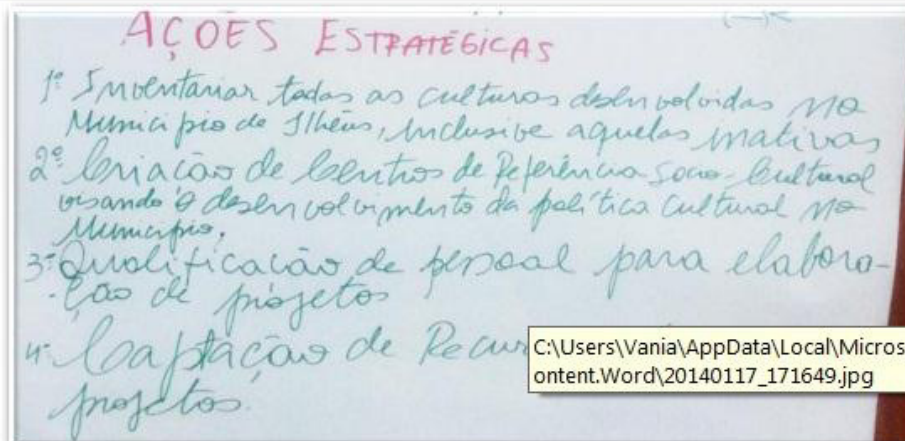 AÇÕES ESTRATÉGICAS
1º Inventariar todas as culturas desenvolvidas no
Município de Ilhéus, inclusive aquelas inativas
2º Criação de Centros de Referência Socio-Cultural
visando o desenvolvimento da política cultural no
Município.
3º Qualificação de pessoal para elabora-
ção de projetos
4º Captação de Recur
projetos.
C:\Users\Vania\AppData\Local\Micros
ontent.Word\20140117_171649.jpg